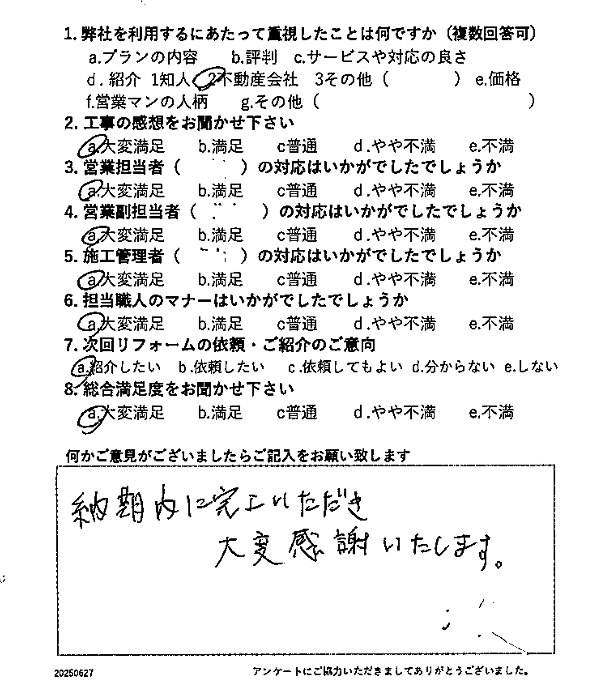 1. 弊社を利用するにあたって重視したことは何ですか（複数回答可）
a.プランの内容 b.評判 c.サービスや対応の良さ
d.紹介 1知人 2不動産会社 3その他（ ） e.価格
f.営業マンの人柄 g.その他（ ）
2. 工事の感想をお聞かせ下さい
a.大変満足 b.満足 c普通 d.やや不満 e.不満
3. 営業担当者（ ）の対応はいかがでしたでしょうか
a.大変満足 b.満足 c普通 d.やや不満 e.不満
4. 営業副担当者（ ）の対応はいかがでしたでしょうか
a.大変満足 b.満足 c普通 d.やや不満 e.不満
5. 施工管理者（ ）の対応はいかがでしたでしょうか
a.大変満足 b.満足 c普通 d.やや不満 e.不満
6. 担当職人のマナーはいかがでしたでしょうか
a.大変満足 b.満足 c普通 d.やや不満 e.不満
7. 次回リフォームの依頼・ご紹介のご意向
a.紹介したい b.依頼したい c.依頼してもよい d.分からない e.しない
8. 総合満足度をお聞かせ下さい
a.大変満足 b.満足 c普通 d.やや不満 e.不満
何かご意見がございましたらご記入をお願い致します
納期内に完工いただき
大変感謝いたします。
20250627 アンケートにご協力いただきましてありがとうございました。